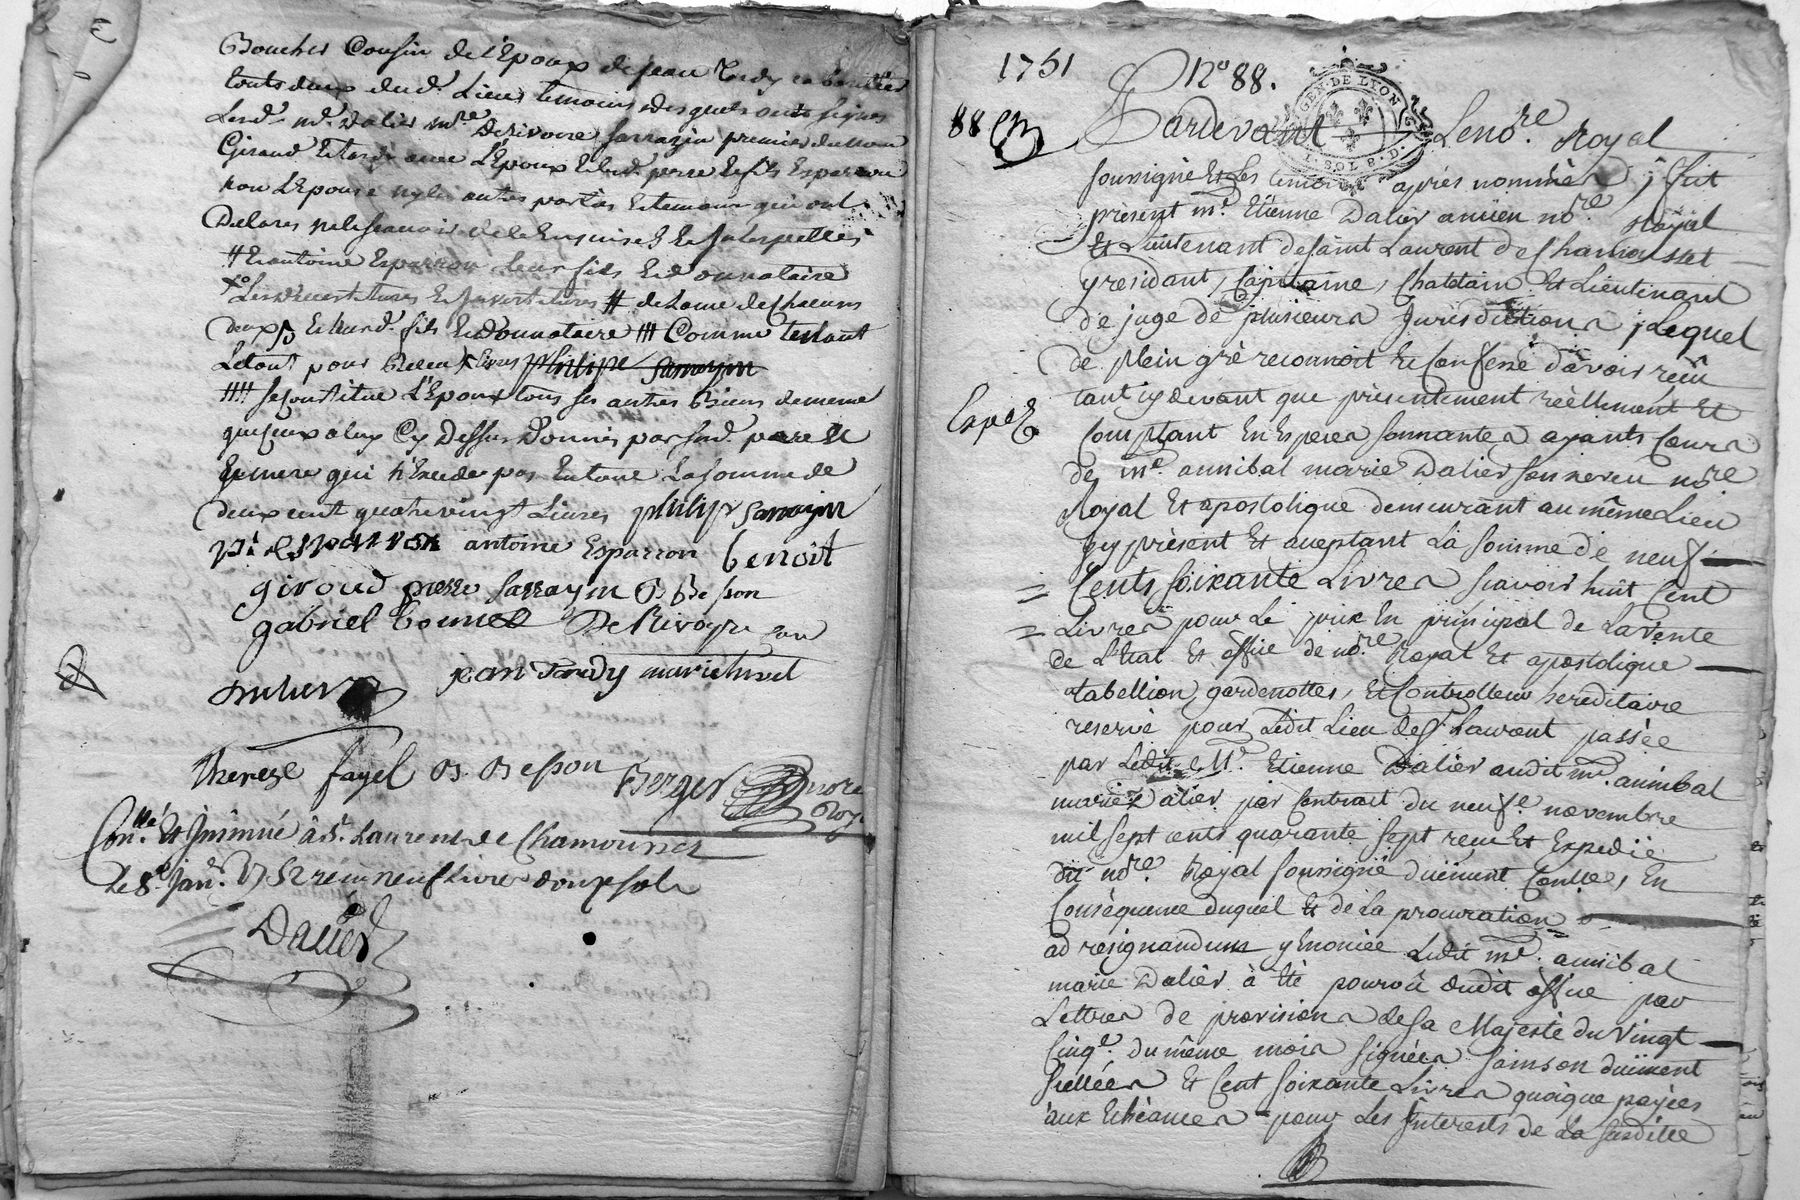 Bouchet Cousin de l'Epoux de jean tardy
touts deux dud. Lieu temoins desquels ont signes
Lesd. md. Dalier mre Derivoire sarrazin premier
Giroud Et tardy avec L'Epoux Et led. pere Et fils Esparron
non L'Epouse ny les autres parties Et temoins qui ont
Declares ne le scavoir de le Enquises Et Interpelles
# Et antoine Esparron leur fils Et donnataire
# de chacuns
deux Et aud. fils Et donnataire ### Comme tenant
Le tout pour philipe Sarrayin
#### se constitue L'Epoux tous ses autres Biens de meme
que ceux a luy Cy Dessus Donnés par sesd. pere Et
Et mere qui n'Excede pas En tout La somme de
deux cent quatre vingt Livres philipe Sarrayin
pi esparron antoine Esparron benoit
giroud pierre sarrayin B Besson
gabriel bonnet DeRivoyre
jean tardy
therese fayel B. Besson Berger nore
Roy
Conlle Et Insinué à St. Laurent de Chamousset
Le 8e Janr. 1752 reçu neuf Livres douze sols
Dalier
1751
No 88.
GEN. DE LYON
1. SOL 8. D.
88 Pardevant Le nore. Royal
soussigné Et Les temoins après nommés, fut
présent mr. Etienne Dalier ancien nore. Royal
Et Lieutenant de saint Laurent de Chamousset
y residant, Capitaine, Chatelain Et Lieutenant
de juge de plusieurs Jurisdictions, Lequel
de plein gré reconnoit Et Confesse d'avoir reçu
tant cy devant que présentement réellement Et
Espes
Comptant En Especes sonnantes ayants Cours
de me. annibal marie Dalier son neveu nore
Royal Et apostolique demeurant au même Lieu
icy présent Et aceptant La somme de neuf
Cents soixante Livres scavoir huit Cent
Livres pour Le prix En principal de La vente
de L'Etat Et office de nore. Royal Et apostolique
tabellion, gardenottes, Et Controlleur hereditaire
reservé pour Ledit Lieu de St Laurent passée
par Ledit Mr. Etienne Dalier audit me. annibal
marie Dalier par Contract du neufe novembre
mil sept cents quarante sept reçu Et Expedié
du nore. Royal soussigné duëment Conllé, En
Conséquence duquel Et de La procuration
ad resignandum y Enoncée Ledit me. annibal
marie Dalier à été pourvû dudit office par
Lettres de provisions de sa Majesté du Vingt
Cinqe. du même mois signées Sainson duëment
scellées Et Cent soixante Livres quoique payées
aux Echéances pour Les Interests de La susditte